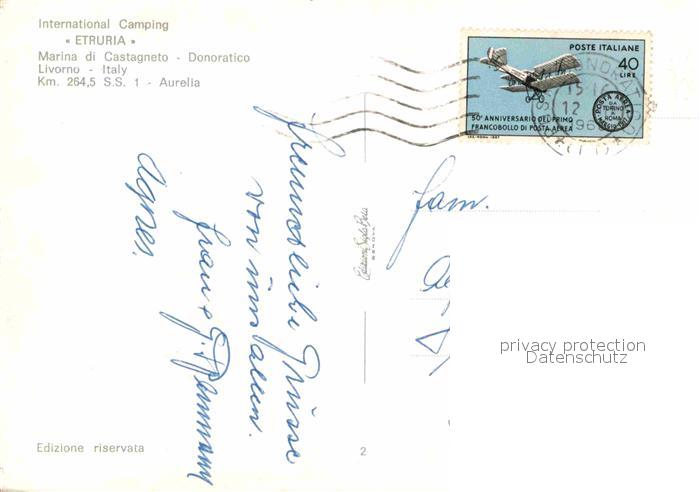 International Camping
« ETRURIA »
Marina di Castagneto - Donoratico
Livorno - Italy
Km. 264,5 S.S. 1 - Aurelia
POSTE ITALIANE
40
LIRE
50° ANNIVERSARIO DEL PRIMO
FRANCOBOLLO DI POSTA AEREA
POSTA AEREA
DA
TORINO
A
ROMA
MAGGIO 1917
15
12
Grüsse
von uns allen.
Agnes.
Fam.
privacy protection
Datenschutz
Edizione riservata
2